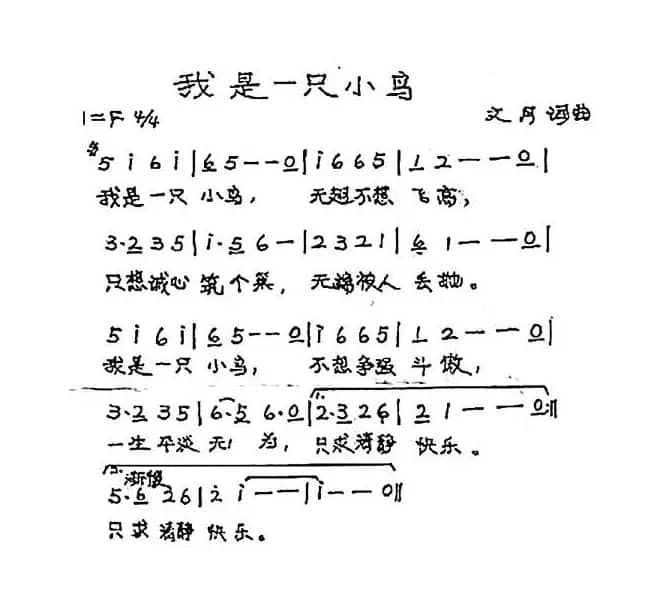 我是一只小鸟
1=F 4/4 文丹词曲
5 i 6 i | 6 5 - - 0 | i 6 6 5 | 1 2 - - 0 |
我是一只 小鸟， 无翅不想 飞高，
3·2 3 5 | i·5 6 - | 2 3 2 1 | 6 1 - - 0 |
只想诚心 筑个巢， 无端被人 丢抛。
5 i 6 i | 6 5 - - 0 | i 6 6 5 | 1 2 - - 0 |
我是一只 小鸟， 不想争强 斗傲，
3·2 3 5 | 6·5 6·0 | 2·3 2 6 | 2 1 - - 0 :||
一生平淡 无 为， 只求清静 快乐。
渐慢
5·6 2 6 | 2 i - - | i - - 0 ||
只求清静 快乐。